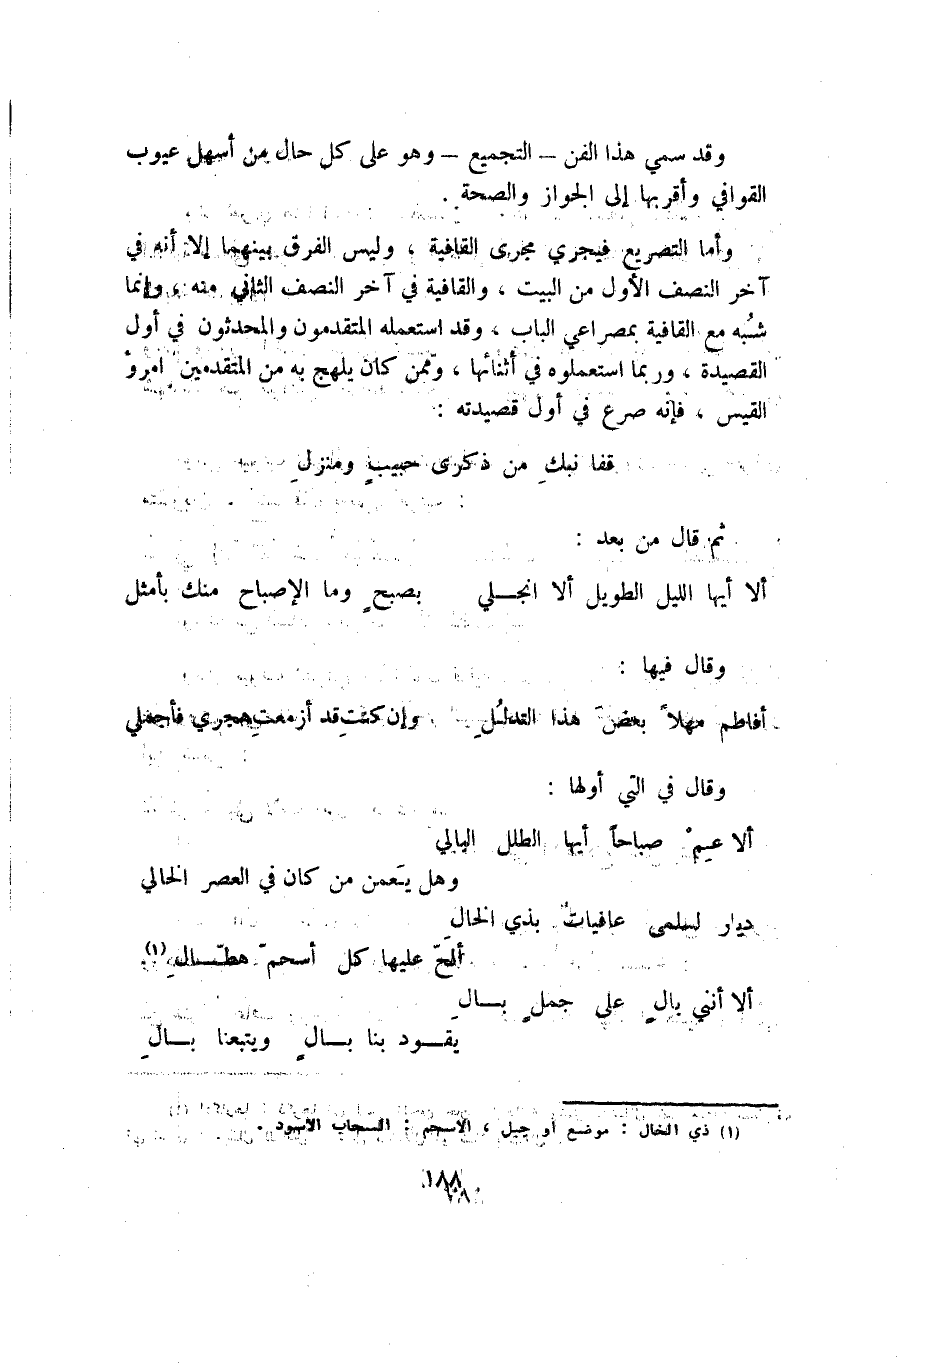 وقد سمي هذا الفن – التجميع – وهو على كل حال من أسهل عيوب
القوافي وأقربها إلى الجواز والصحة .
وأما التصريع فيجري مجرى القافية ، وليس الفرق بينهما إلا أنه في
آخر النصف الأول من البيت ، والقافية في آخر النصف الثاني منه ، وإنما
شُبه مع القافية بمصراعي الباب ، وقد استعمله المتقدمون والمحدثون في أول
القصيدة ، وربما استعملوه في أثنائها ، وممن كان يلهج به من المتقدمين امرؤ
القيس ، فإنه صرع في أول قصيدته :
قفا نبكِ من ذكرى حبيبٍ ومنزلِ
ثم قال من بعد :
ألا أيها الليل الطويل ألا انجــلي بصبحٍ وما الإصباح منك بأمثل
وقال فيها :
أفاطم مهلاً بعضَ هذا التدلُلِ وإن كنتِ قد أزمعتِ هجري فأجملي
وقال في التي أولها :
ألا عِمْ صباحاً أيها الطلل البالي
وهل يَعمن من كان في العصر الخالي
ديار لسلمى عافياتٌ بذي الخالِ
ألحّ عليها كل أسحمّ هطّــالِ (١)
ألا أنني بالٍ على جملٍ بــالِ
يقــود بنا بــالٍ ويتبعنا بــالِ
(١) ذي الخال : موضع أو جبل ، الأسحم : السحاب الأسود .
١٨٨